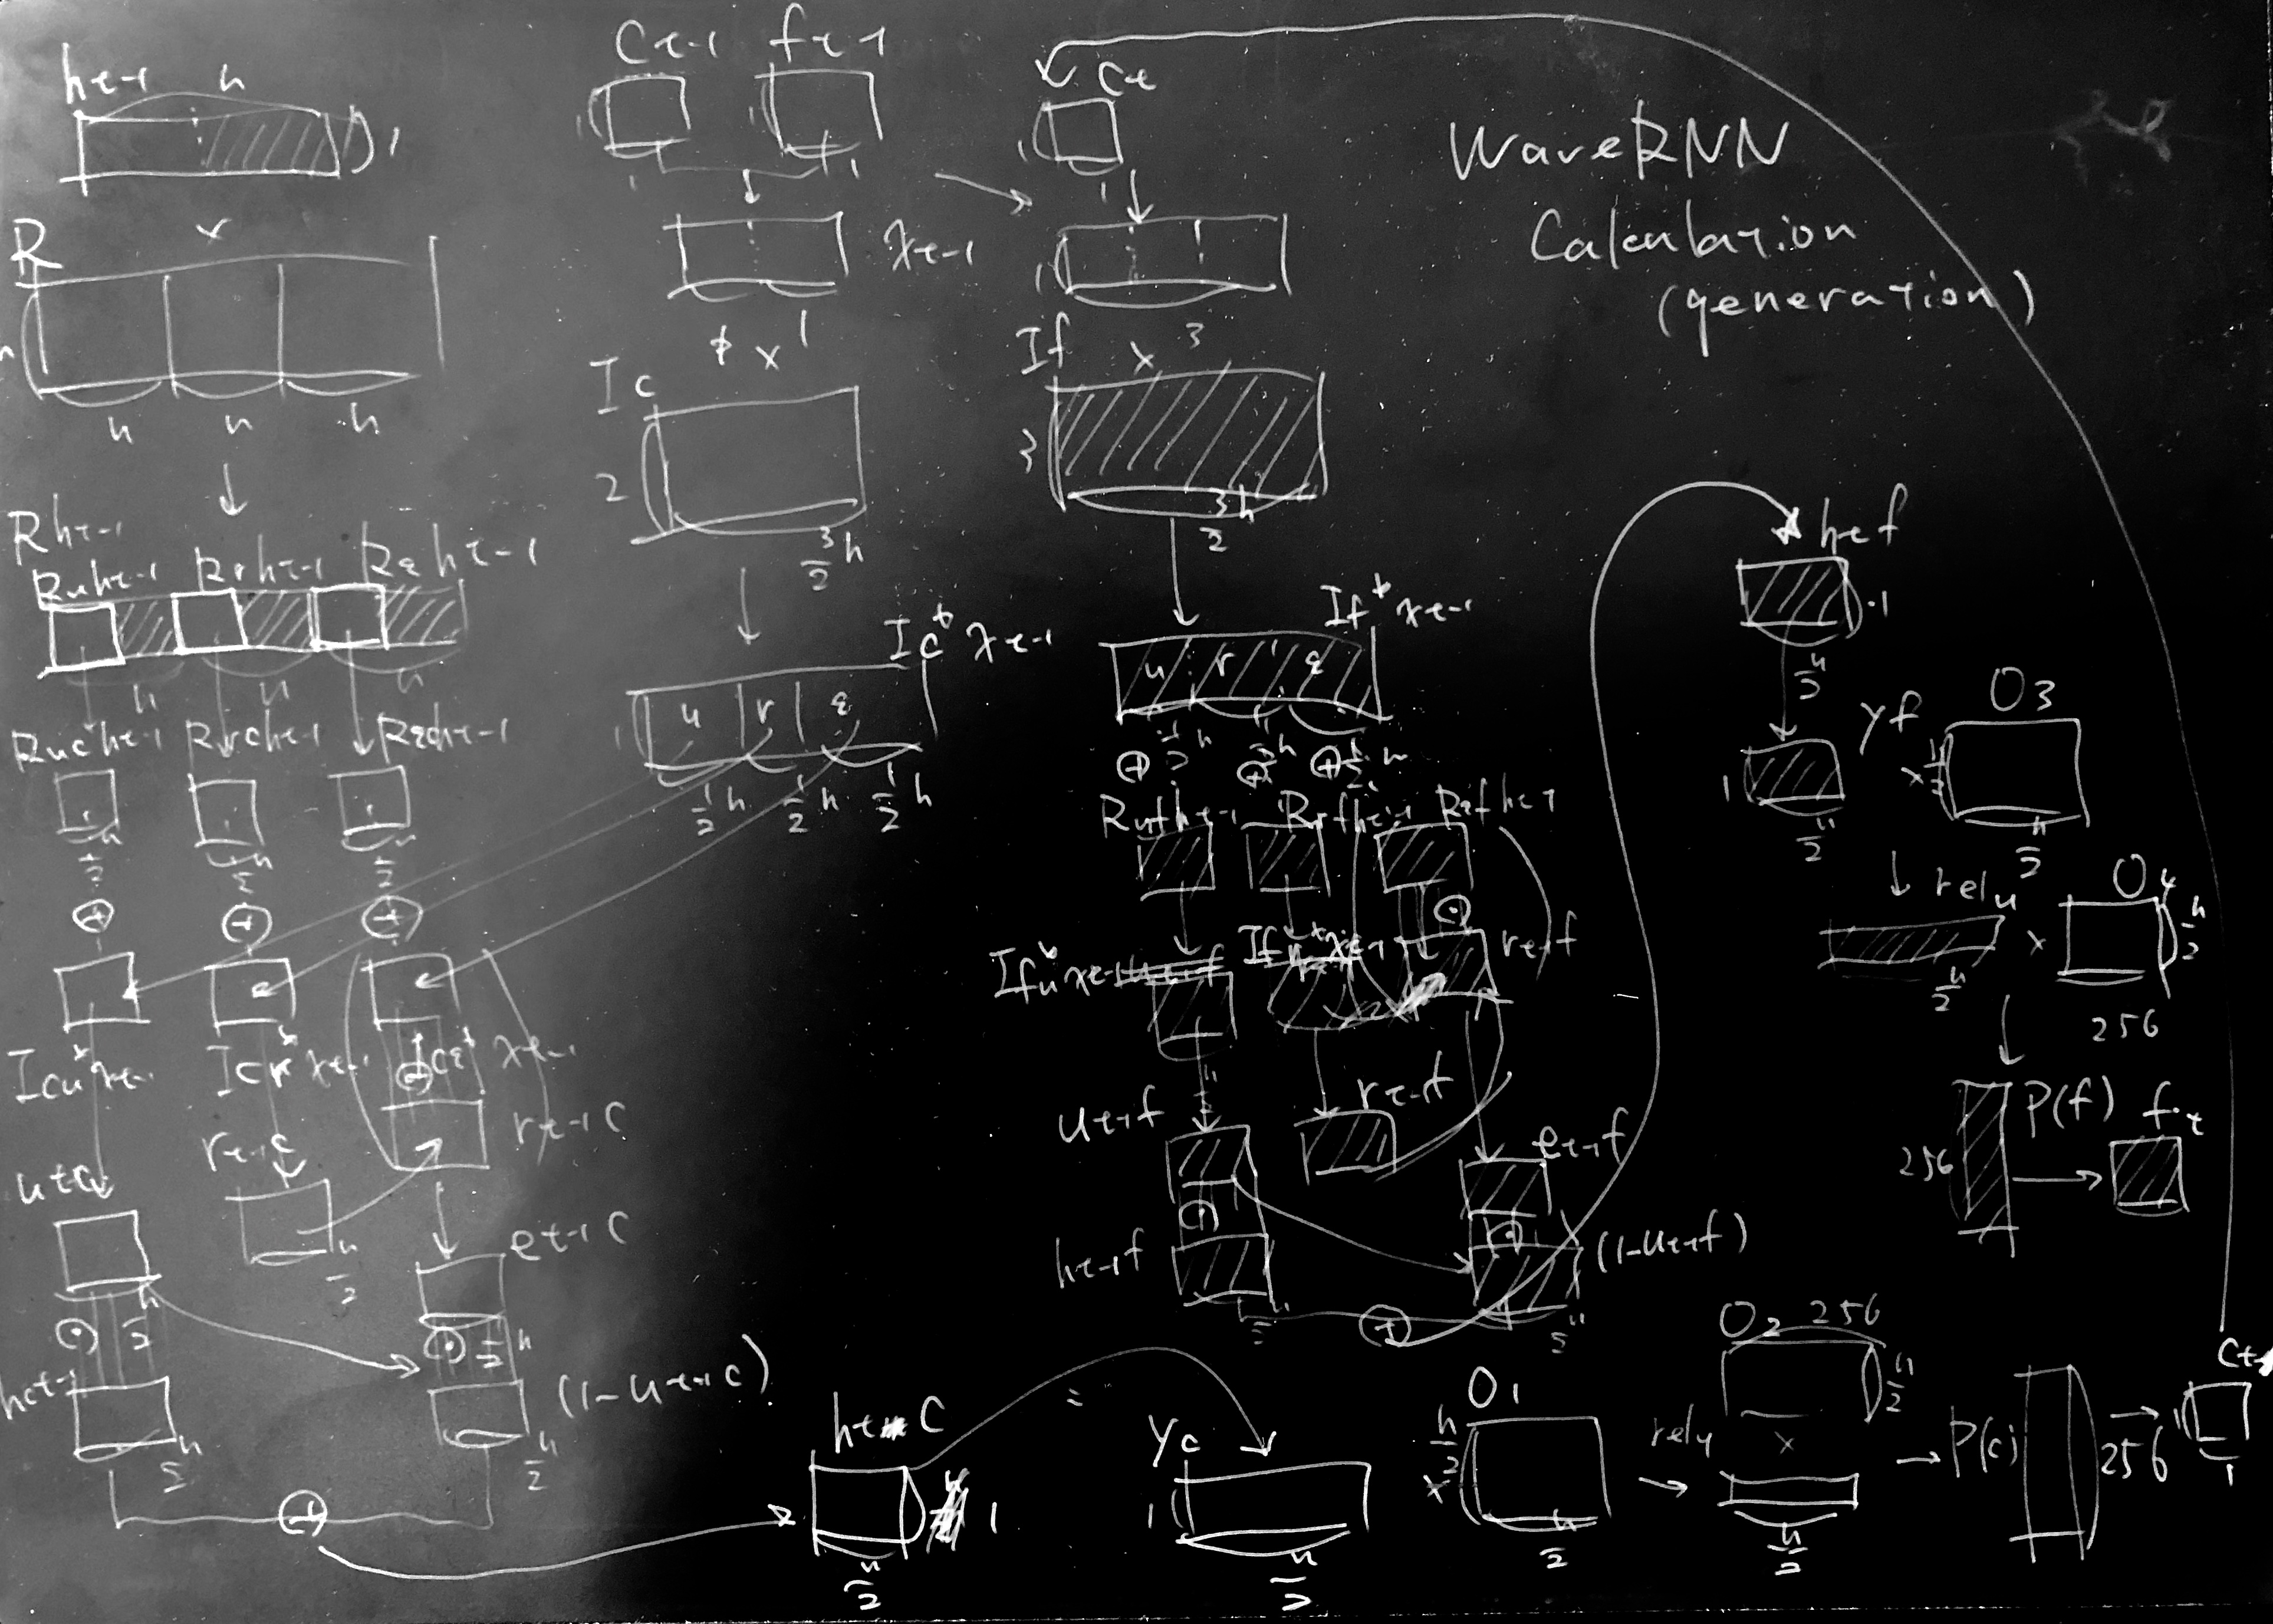 WaveRNN
Calculation
(generation)
ht-1 n
1
R x
n n n
Rht-1
Ruht-1 Rrht-1 Reht-1
n n n
Rucht-1 Rrcht-1 Recht-1
Icu*xt-1 Icr*xt-1 Ice*xt-1
rt-1c
rt-1c
utc
et-1c
hct-1
(1-ut-1c)
Ct-1 ft-1
1 1
xt-1
x
Ic
2
3/2 h
Ic*xt-1
u r e
1
1/2 h 1/2 h 1/2 h
Ct
1
1
3
If x
3
3/2 h
If*xt-1
u r e
Rufht-1 Rrfht-1 Refht-1
Ifu*xt-1 Ifr*xt-1 rt-1f
ut-1f rt-1f et-1f
ht-1f
(1-ut-1f)
htf
1
h/2
yf x O3
1 h/2 h/2
relu O4
h/2 x h/2
256
P(f) ft
256
htC
1
h/2
=
yc
1
h/2
O1
h/2 x
h/2
relu
O2 256
h/2
x
h/2
P(c)
256
Ct
1
1